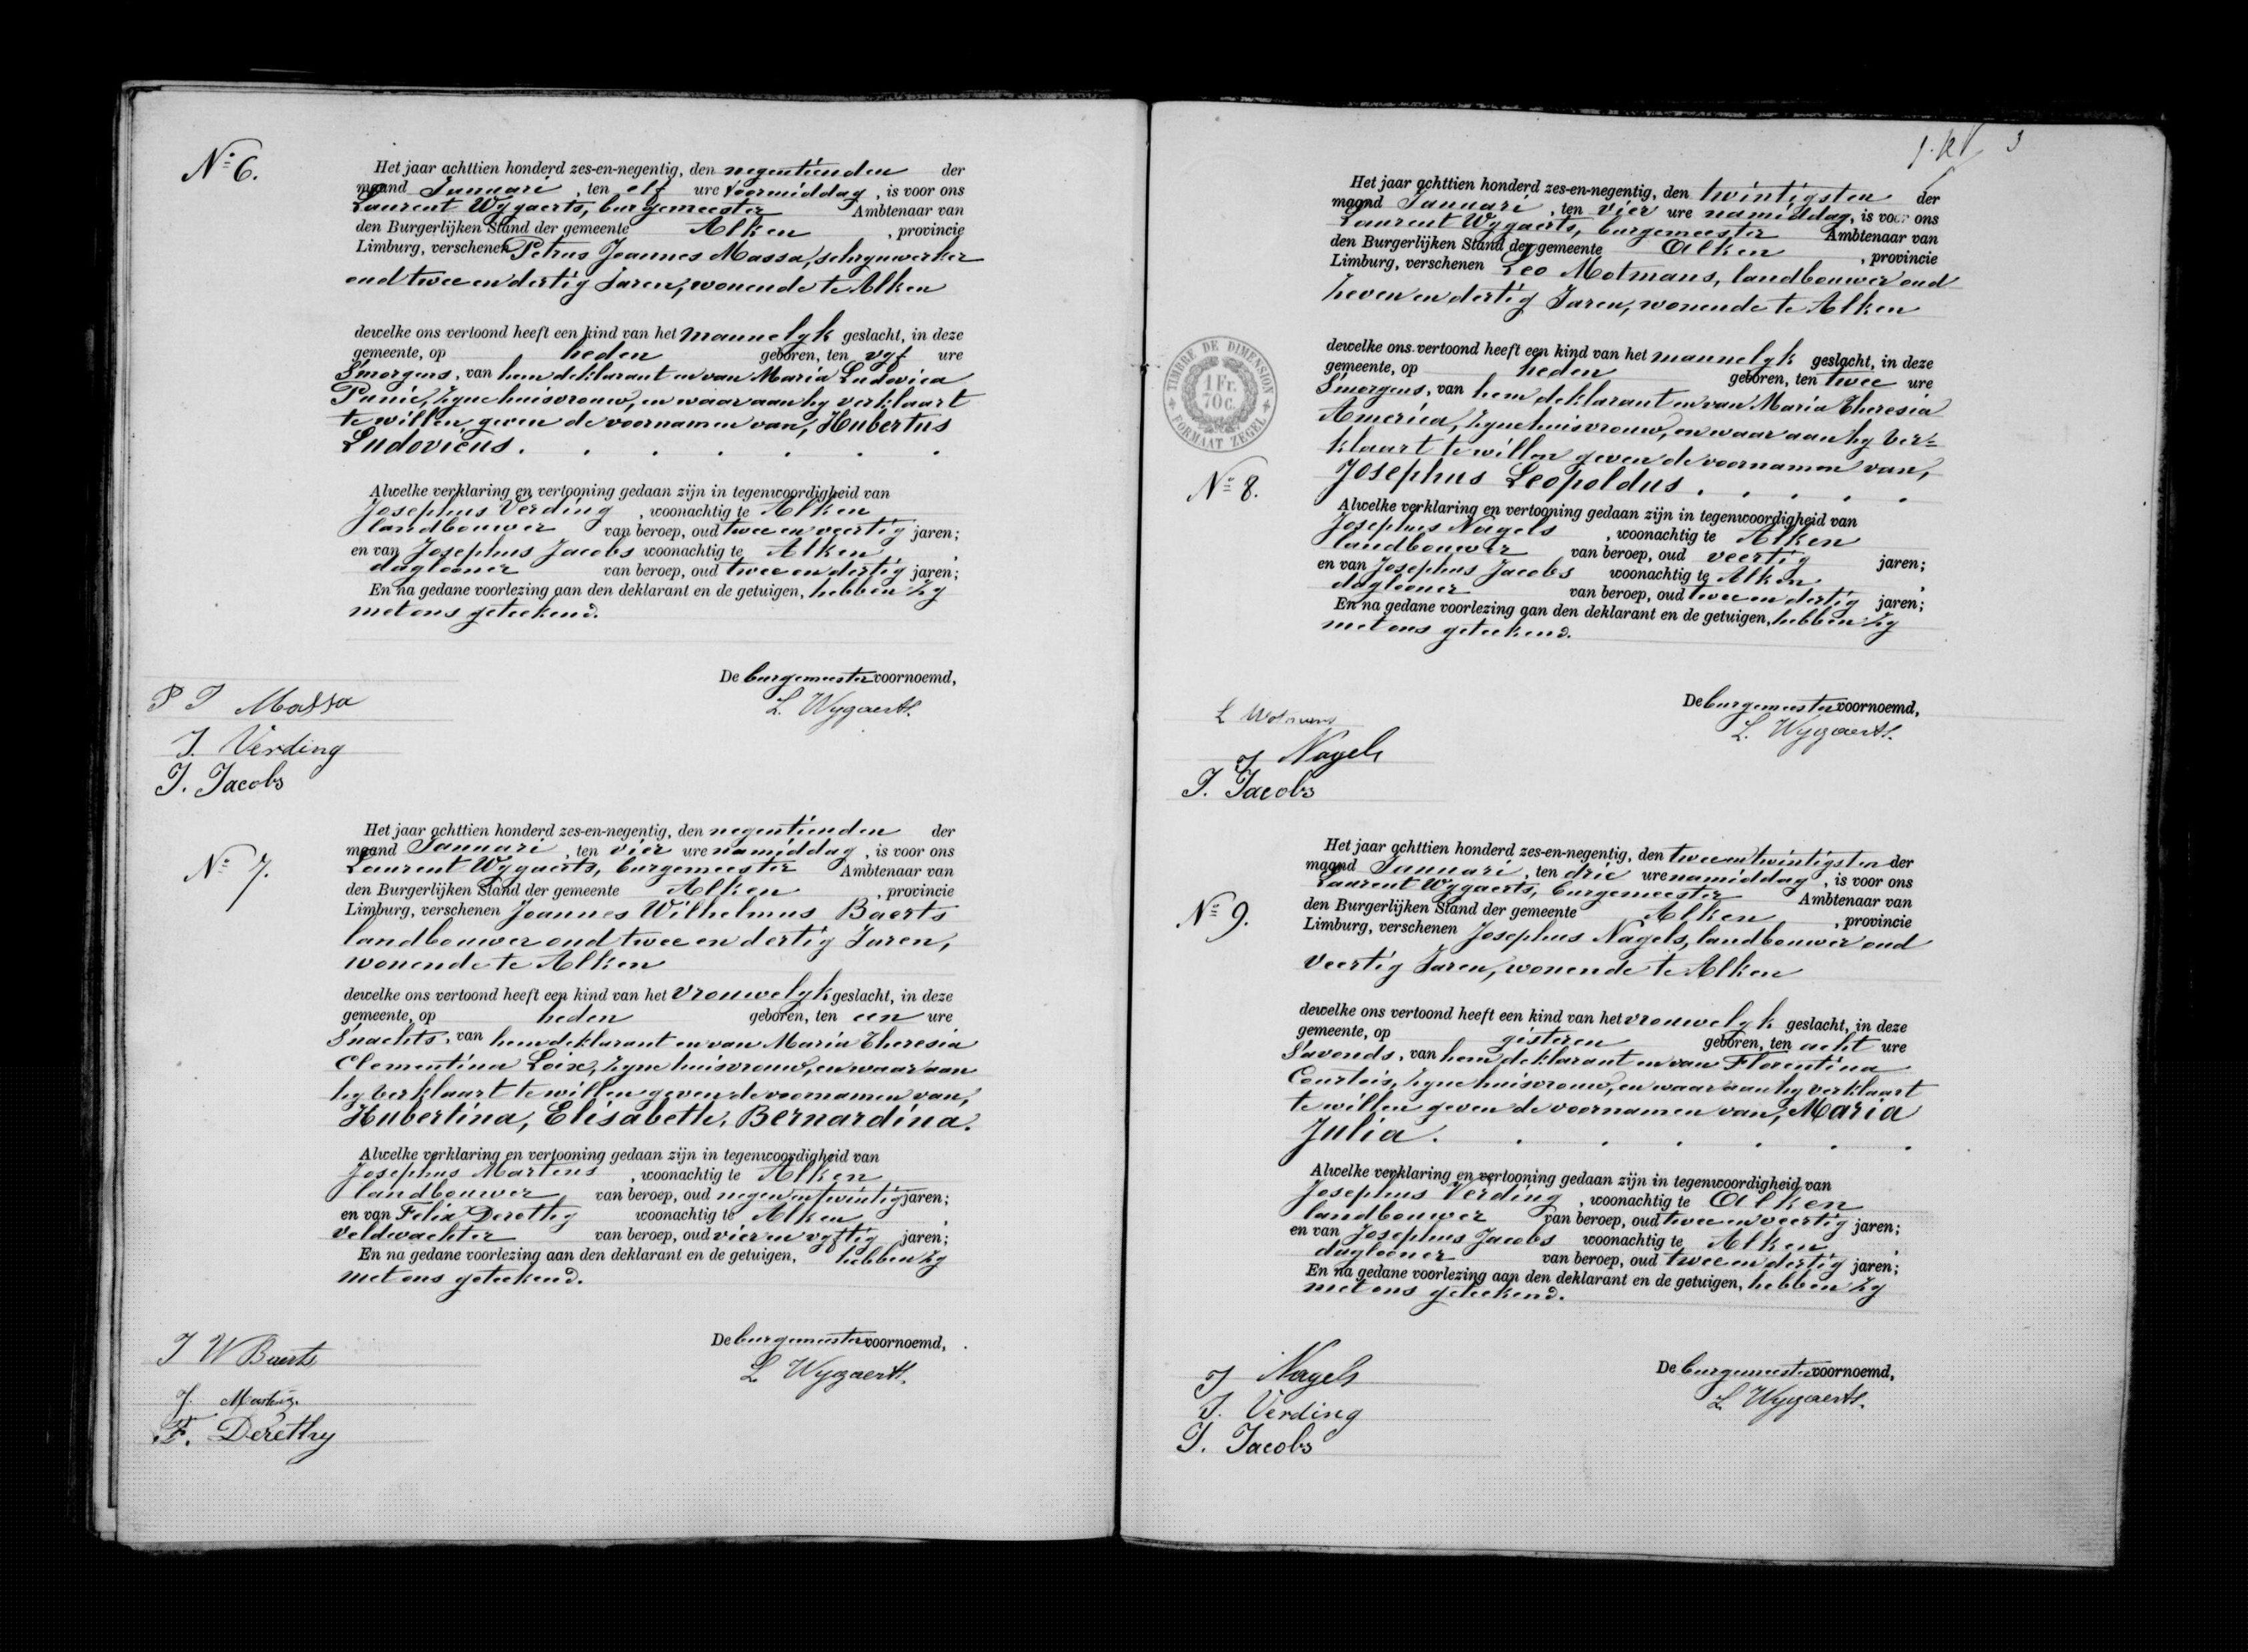 Nº 6.
Het jaar achttien honderd zes-en-negentig, den negentienden der
maand Januari, ten elf ure voormiddag, is voor ons
Laurent Wygaerts, burgemeester Ambtenaar van
den Burgerlijken Stand der gemeente Alken, provincie
Limburg, verschenen Petrus Joannes Massa, schrynwerker
oud twee en dertig Jaren, wonende te Alken
dewelke ons vertoond heeft een kind van het mannelyk geslacht, in deze
gemeente, op heden geboren, ten vyf ure
S'morgens, van hem deklarant en van Maria Ludovica
zyne huisvrouw, en waar aan hy verklaart
te willen geven de voornamen van, Hubertus
Ludovicus.
Alwelke verklaring en vertooning gedaan zijn in tegenwoordigheid van
Josephus Verding, woonachtig te Alken
landbouwer van beroep, oud twee en veertig jaren;
en van Josephus Jacobs woonachtig te Alken,
daglooner van beroep, oud twee en dertig jaren;
En na gedane voorlezing aan den deklarant en de getuigen, hebben zy
met ons geteekend.
De burgemeester voornoemd,
L. Wygaerts.
P J Massa
J. Verding
J. Jacobs
Nº 7.
Het jaar achttien honderd zes-en-negentig, den negentienden der
maand Januari, ten vier ure namiddag, is voor ons
Laurent Wygaerts, burgemeester Ambtenaar van
den Burgerlijken Stand der gemeente Alken, provincie
Limburg, verschenen Joannes Wilhelmus Baerts
landbouwer oud twee en dertig Jaren,
wonende te Alken
dewelke ons vertoond heeft een kind van het vrouwelyk geslacht, in deze
gemeente, op heden geboren, ten een ure
S'nachts, van hem deklarant en van Maria Theresia
Clementina Loix, zyne huisvrouw, en waar aan
hy verklaart te willen geven de voornamen van,
Hubertina, Elisabeth, Bernardina.
Alwelke verklaring en vertooning gedaan zijn in tegenwoordigheid van
Josephus Martens, woonachtig te Alken
landbouwer van beroep, oud negen en twintig jaren;
en van Felix Derethy woonachtig te Alken,
veldwachter van beroep, oud vier en vyftig jaren;
En na gedane voorlezing aan den deklarant en de getuigen, hebben zy
met ons geteekend.
De burgemeester voornoemd,
L. Wygaerts.
J W Baerts
J. Martens.
F. Derethy
3
TIMBRE DE DIMENSION
1 Fr.
70 c.
FORMAAT ZEGEL
Nº 8.
Het jaar achttien honderd zes-en-negentig, den twintigsten der
maand Januari, ten vier ure namiddag, is voor ons
Laurent Wygaerts, burgemeester Ambtenaar van
den Burgerlijken Stand der gemeente Alken, provincie
Limburg, verschenen Leo Motmans, landbouwer oud
zeven en dertig Jaren, wonende te Alken
dewelke ons vertoond heeft een kind van het mannelyk geslacht, in deze
gemeente, op heden geboren, ten twee ure
S'morgens, van hem deklarant en van Maria Theresia
America, zyne huisvrouw, en waar aan hy ver=
klaart te willen geven de voornamen van,
Josephus Leopoldus.
Alwelke verklaring en vertooning gedaan zijn in tegenwoordigheid van
Josephus Nagels, woonachtig te Alken
landbouwer van beroep, oud veertig jaren;
en van Josephus Jacobs woonachtig te Alken,
daglooner van beroep, oud twee en dertig jaren;
En na gedane voorlezing aan den deklarant en de getuigen, hebben zy
met ons geteekend.
De burgemeester voornoemd,
L. Wygaerts.
L Motmans
J Nagels
J. Jacobs
Nº 9.
Het jaar achttien honderd zes-en-negentig, den twee en twintigsten der
maand Januari, ten drie ure namiddag, is voor ons
Laurent Wygaerts, burgemeester Ambtenaar van
den Burgerlijken Stand der gemeente Alken, provincie
Limburg, verschenen Josephus Nagels, landbouwer oud
veertig Jaren, wonende te Alken
dewelke ons vertoond heeft een kind van het vrouwelyk geslacht, in deze
gemeente, op gisteren geboren, ten acht ure
S'avonds, van hem deklarant en van Florentina
Courtois, zyne huisvrouw, en waar aan hy verklaart
te willen geven de voornamen van, Maria
Julia.
Alwelke verklaring en vertooning gedaan zijn in tegenwoordigheid van
Josephus Verding, woonachtig te Alken
landbouwer van beroep, oud twee en veertig jaren;
en van Josephus Jacobs woonachtig te Alken,
daglooner van beroep, oud twee en dertig jaren;
En na gedane voorlezing aan den deklarant en de getuigen, hebben zy
met ons geteekend.
De burgemeester voornoemd,
L. Wygaerts.
J Nagels
J. Verding
J. Jacobs